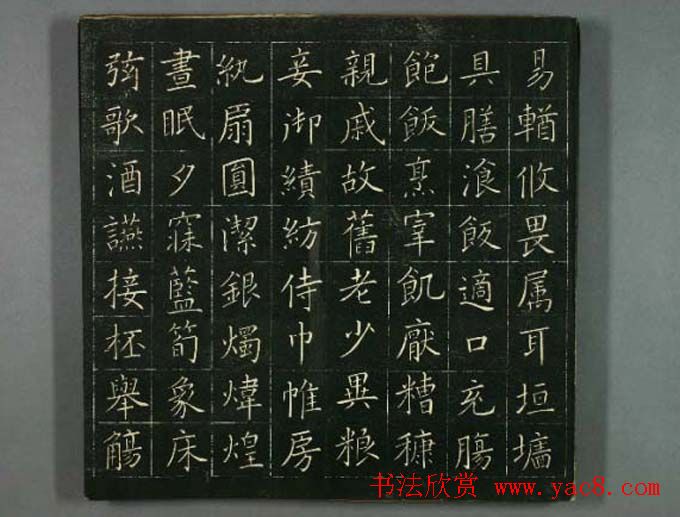 易輶攸畏属耳垣墻
具膳飡飯適口充腸
飽飯烹宰飢厭糟糠
親戚故舊老少異粮
妾御績紡侍巾帷房
紈扇圓潔銀燭煒煌
晝眠夕寐藍筍象床
弦歌酒讌接杯舉觴
书法欣赏 www.yac8.com